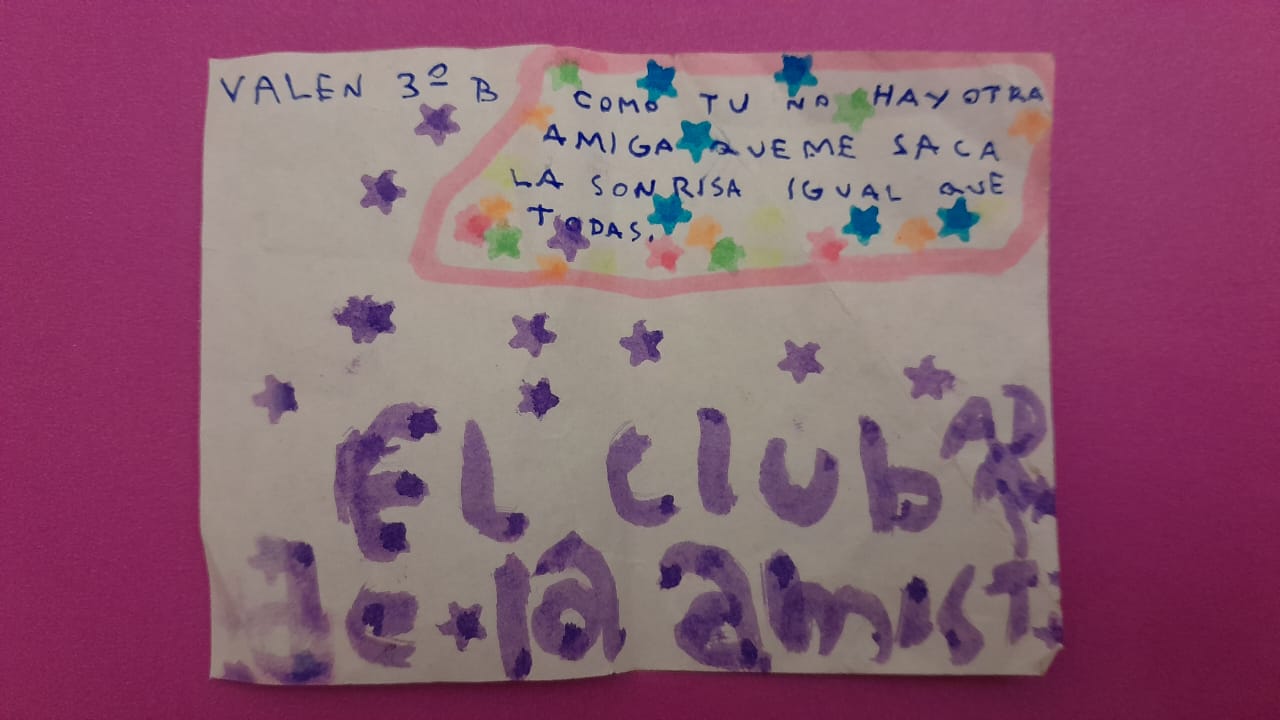 VALEN 3º B
COMO TU NO HAY OTRA
AMIGA QUE ME SACA
LA SONRISA IGUAL QUE
TODAS.
El club
de la amist
AD